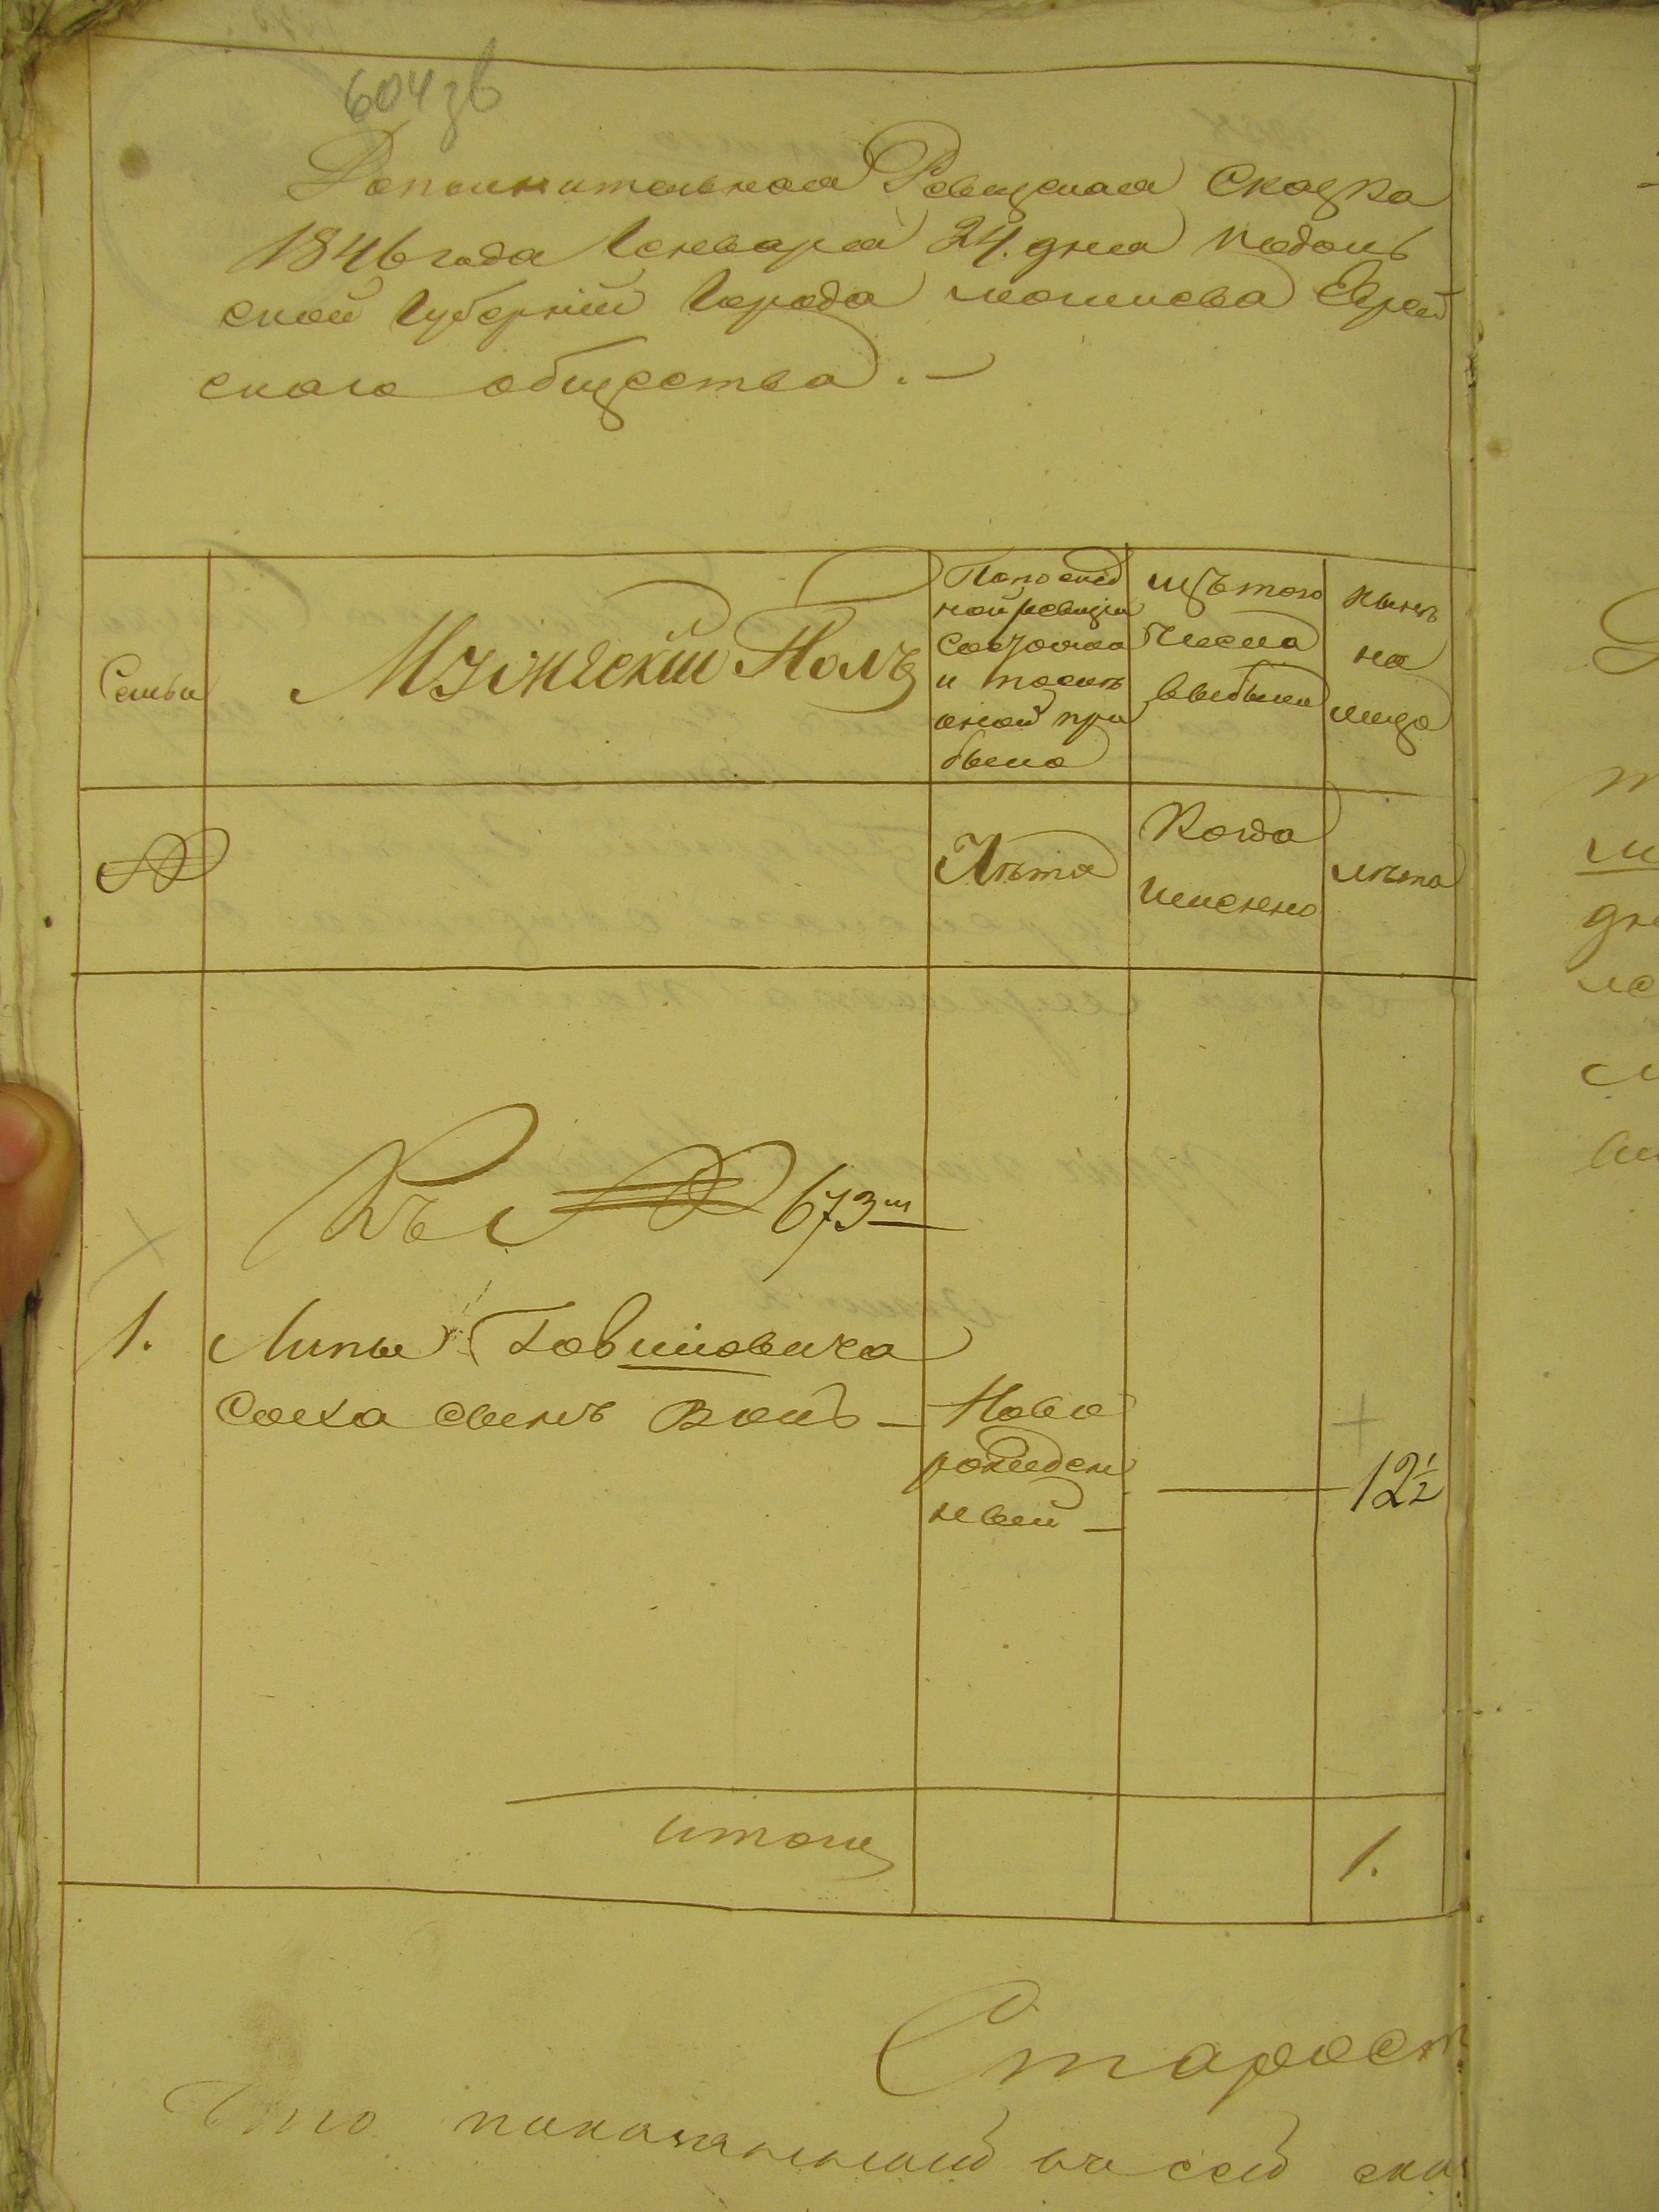 604 зв
Дополнительная Ревизская Сказка
1846 года Генваря 24. дня Подоль
ской Губерніи Города Могилева Еврей
скаго общества. —
Семьи
Мужескій Полъ
По послед
ней ревизіи
Состояло
и после
оной при
было
Изъ того
Числа
выбыло
Ныне
на
лицо
№
Лѣта
Когда
Именно
Лѣта
Къ № 673 му
1.
Липы Говшiовича
Соиха сынъ Волъ —
Ново
рожден
ный —
12½
итого
1.
Старост
Что показанный в сей сказ